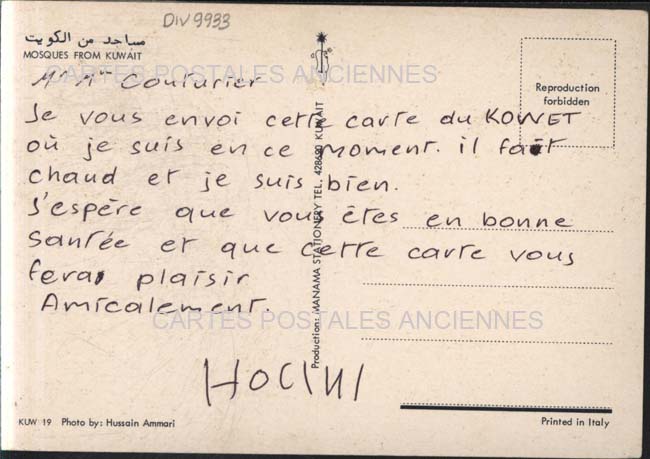 DIV 9933
مساجد من الكويت
MOSQUES FROM KUWAIT
CARTES POSTALES ANCIENNES
Mr Mme Couturier
Je vous envoi cette carte du KOWET
où je suis en ce moment. il fait
chaud et je suis bien.
J'espère que vous êtes en bonne
santée et que cette carte vous
fera plaisir
Amicalement.
CARTES POSTALES ANCIENNES
HOCINI
Reproduction
forbidden
Production: MANAMA STATIONERY TEL. 428690 KUWAIT
KUW 19 Photo by: Hussain Ammari
Printed in Italy